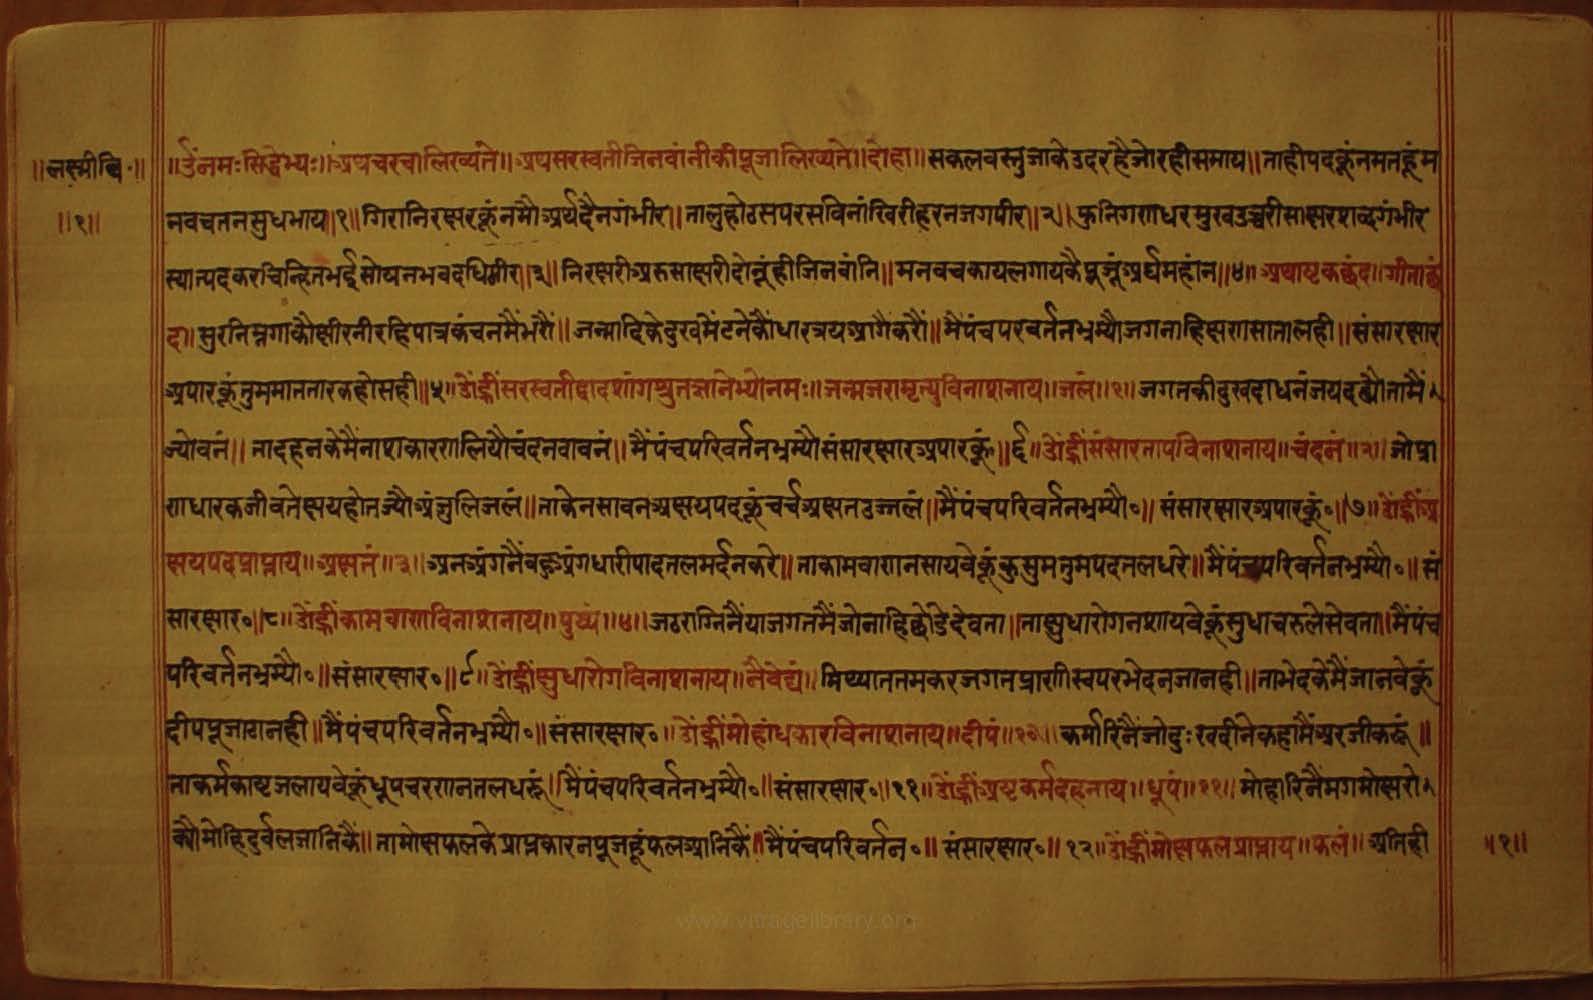 ॥लक्ष्मीवि॰॥ ॥उँनमःसिद्धेभ्यः॥अथचरचालिख्यते॥अथसरस्वतीजिनवांनीकीपूजालिख्यते॥दोहा॥सकलवस्तुजाकेउदरहैजोरहीसमाय॥ताहीपदकूंनमतहूंम
॥१॥ नवचतनसुधभाय॥१॥गिरानिरक्षरकूंनमौअर्थदैनगंभीर॥तालुहोठसपरसविनांखिरीहरनजगपीर॥२॥फुनिगणधरमुखउच्चरीसाक्षरशब्दगंभीर
स्यात्पदकरचिन्हितभईसोथनभवदधितीर॥३॥निरक्षरीअरुसाक्षरीदोनूंहीजिनवांनि॥मनवचकायलगायकैपूजूंअर्घमहांन॥४॥अथाष्टकछंद॥गीताछं
दा॥सुरनिम्नगाकौक्षीरनीरहिपात्रकंचनमैंभरौं॥जन्मादिकेदुखमेंटनेकौंधारत्रयआगैकरौं॥मैंपंचपरवर्तनभ्रम्यौजगनाहिक्षणसातालही॥संसारक्षार
अपारकूंतुममानतारकहोसही॥५॥ओंह्रींसरस्वतीद्वादशांगश्रुतज्ञानेभ्योनमः॥जन्मजरामृत्युविनाशनाय॥जलं॥१॥जगतकीदुखदाधनंजयदह्यौतामैं
ज्योवनं॥तादहनकेमैंनाशकारणलियौचंदनवावनं॥मैंपंचपरिवर्तनभ्रम्यौसंसारक्षारअपारकूं॥६॥ओंह्रींसंसारतापविनाशनाय॥चंदनं॥२॥जोप्रा
णधारकजीवतेक्षयहोतज्यौअंजुलिजलं॥ताकेनसावनअक्षयपदकूंचर्चअक्षतउज्जलं॥मैंपंचपरिवर्तनभ्रम्यौ॰॥संसारक्षारअपारकूं॰॥७॥ओंह्रींअ
क्षयपदप्राप्ताय॥अक्षतं॥३॥अनअंगनैंवहुअंगधारीपादतलमर्दनकरे॥ताकामवाणनसायवेकूंकुसुमतुमपदतलधरे॥मैंपंचपरिवर्तनभ्रम्यौ॰॥सं
सारक्षार॰॥८॥ओंह्रींकामवाणविनाशनाय॥पुष्पं॥४॥जठराग्निनैंयाजगतमैंजोनाहिछोडेदेवता॥ताक्षुधारोगनशायवेकूंसुधाचरुलेसेवता॥मैंपंच
परिवर्तनभ्रम्यौ॰॥संसारक्षार॰॥९॥ओंह्रींक्षुधारोगविनाशनाय॥नैवेद्यं॥मिथ्याततमकरजगतप्राणीस्वपरभेदनजानही॥ताभेदकेमैंजानवेकूं
दीपपूजाठानही॥मैंपंचपरिवर्तनभ्रम्यौ॰॥संसारक्षार॰॥ओंह्रींमोहांधकारविनाशनाय॥दीपं॥१०॥कर्मारिनैंजोदुःखदीनेकहामैंअरजीकरूं॥
ताकर्मकाष्टजलायवेकूंधूपचरणनतलधरूं॥मैंपंचपरिवर्तनभ्रम्यौ॰॥संसारक्षार॰॥११॥ओंह्रींअष्टकर्मदहनाय॥धूपं॥११॥मोहारिनैंमगमोक्षरो
क्यौमोहिदुर्वलजानिकैं॥तामोक्षफलकेप्राप्तकारनपूजहूंफलआनिकैं॥मैंपंचपरिवर्तन॰॥संसारक्षार॰॥१२॥ओंह्रींमोक्षफलप्राप्ताय॥फलं॥अतिही ॥१॥
www.vitragelibrary.org